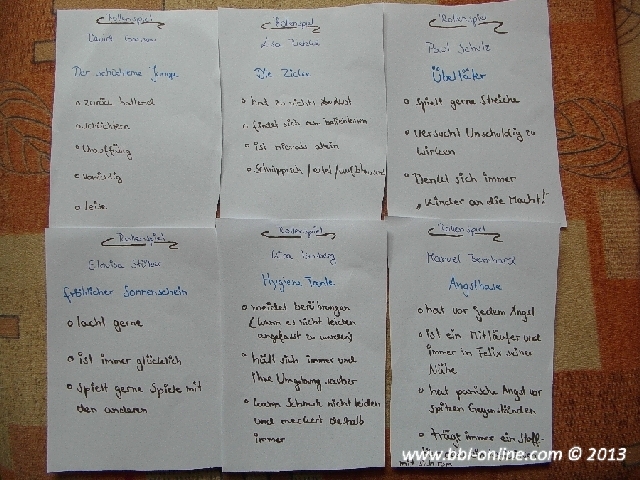 Rollenspiel
Der schüchterne Junge
zurück haltend
schüchtern
Unauffällig
vorsichtig
leise
Rollenspiel
Lisa
Die Zicke
hat zu nichts Lust
findet sich am
ist niemals allein
Schnippisch / eitel /
Rollenspiel
Paul Schulz
Übeltäter
spielt gerne Streiche
versucht Unschuldig zu
wirken
Denkt sich immer
„Kinder an die Macht!"
Rollenspiel
fröhlicher Sonnenschein
lacht gerne
ist immer glücklich
spielt gerne Spiele mit
den anderen
Rollenspiel
Hygiene
meidet berührungen
(kann es nicht leiden
angefasst zu werden)
hält sich immer und
Ihre Umgebung sauber
kann Schmutz nicht leiden
und meckert deshalb
immer
Rollenspiel
Angsthase
hat vor jedem Angst
ist ein Mitläufer und
immer in Felix seiner
Nähe
hat panische Angst vor
spitzen Gegenständen
trägt immer ein Stoff-
mit sich rum
www.bbl-online.com © 2013